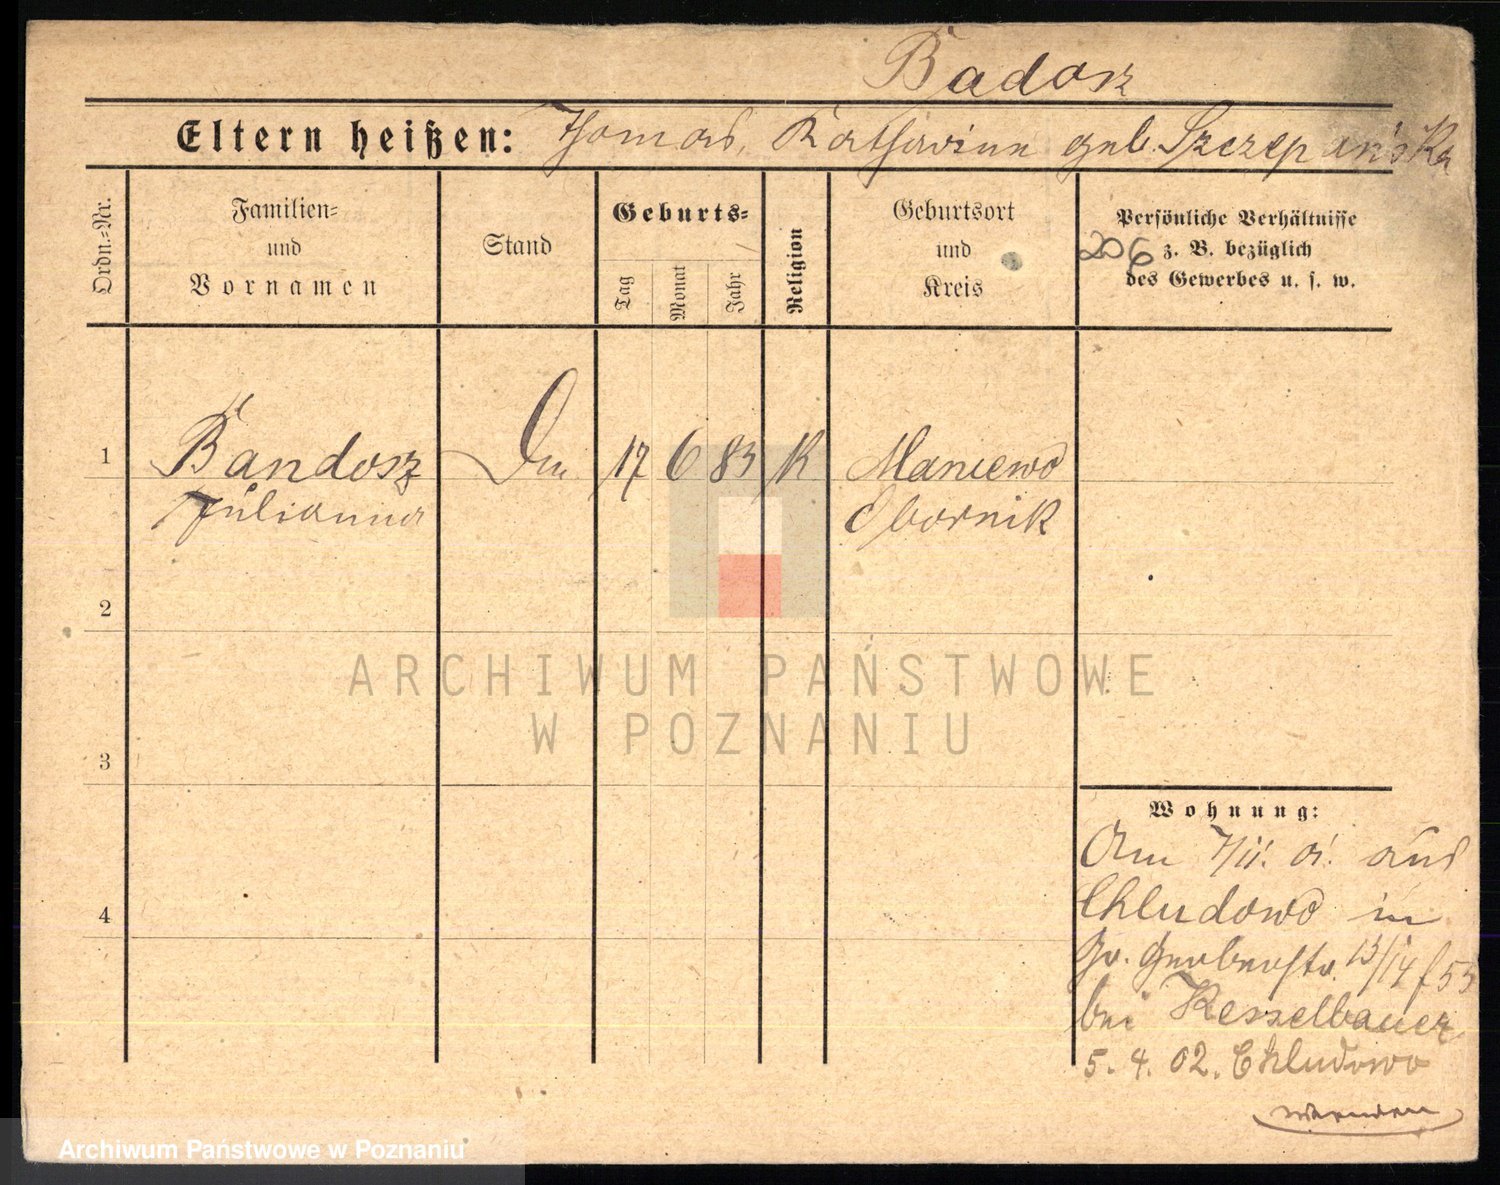 Badosz
Eltern heißen: Thomas, Katharina geb. Szczepańska
Ordn.-Nr.
Familien-
und
Vornamen
Stand
Geburts-
Tag
Monat
Jahr
Religion
Geburtsort
und
Kreis
Persönliche Verhältnisse
206 z. B. bezüglich
des Gewerbes u. s. w.
1 Bandosz 17 6 83 K Maniewo
Julianna Obornik
2
ARCHIWUM PAŃSTWOWE
W POZNANIU
3
Wohnung:
Am 7/11. 01. aus
4 Chludowo in
Gr. Gerberstr. 13/14
bei Kesselbauer
5. 4. 02. Chludowo
wenden
Archiwum Państwowe w Poznaniu